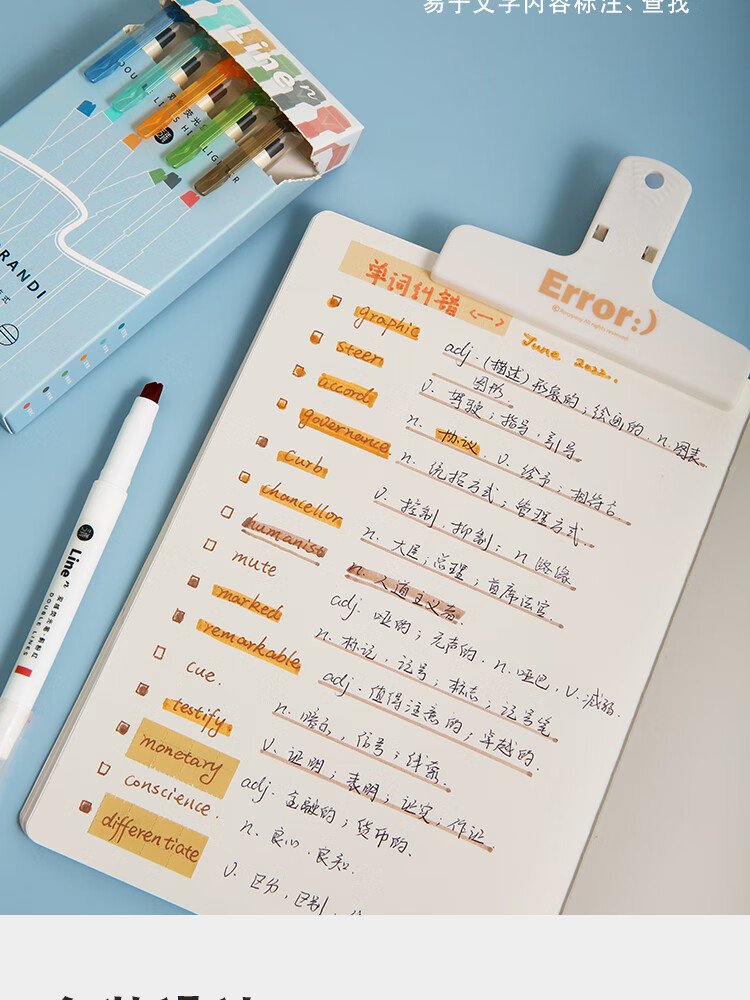 易于文字内容标注、查找
Linen
DOUBLE LINES HIGHLIGHTER
Error:)
单词纠错<一>
June 2022..
graphic
adj.(描述)形象的;绘画的.n.图表
图形.
steer
v.驾驶;指导,引导
accord
n.协议.v.给予;相符合
governance
n.统招方式;管理方式.
curb
v.控制,抑制;n路缘
chancellor
n.大臣;总理;首席法官.
humanist
n.人道主义者.
mute
adj.哑的;无声的.n.哑巴,v.减弱.
marked
n.标记,记号;标志;记号笔
remarkable
adj.值得注意的;卓越的.
cue.
n.暗示,信号;线索.
testify.
v.证明;表明;证实;作证.
monetary
adj.金融的;货币的.
conscience.
n.良心,良知.
differentiate
v.区分,区别,
Linen
DOUBLE LINES